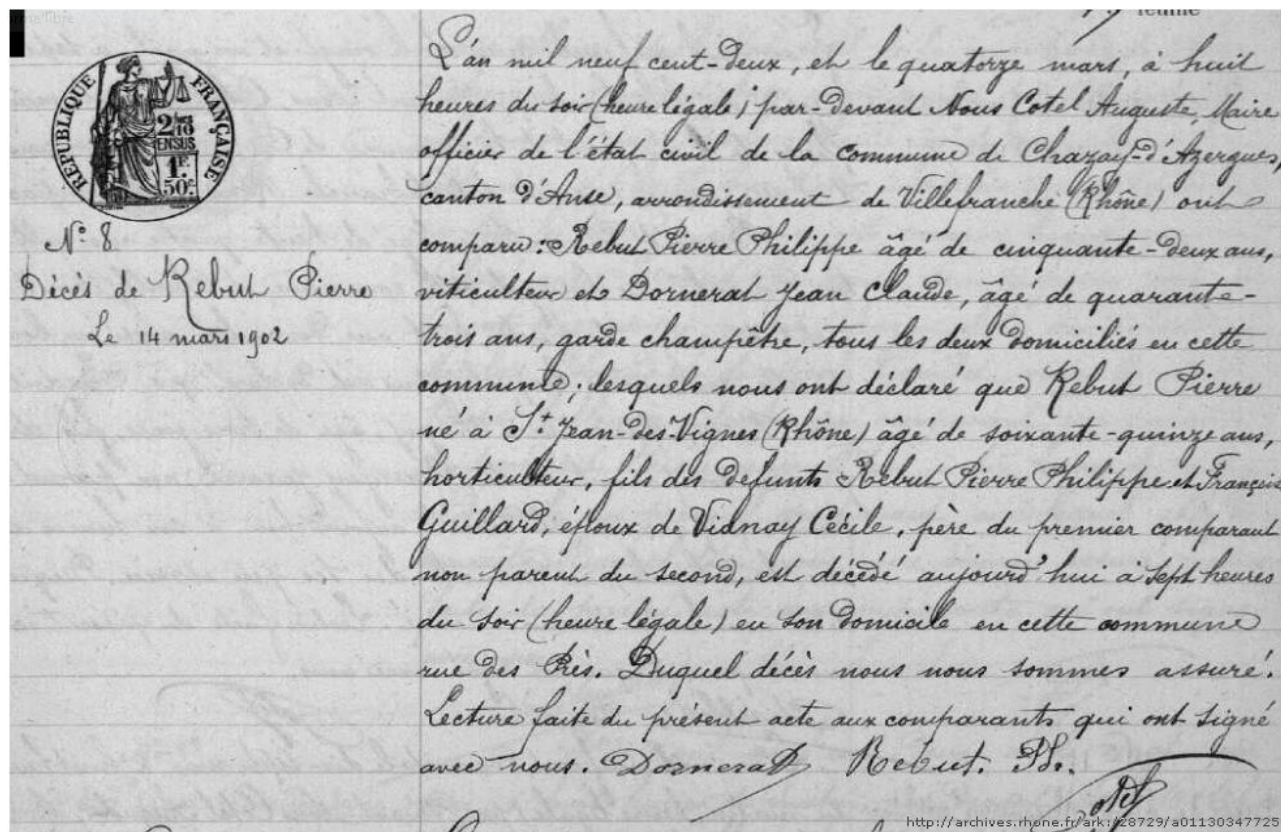 feuille
RÉPUBLIQUE FRANÇAISE
2/10
EN SUS
1F.
50c
N° 8
Décès de Rebut Pierre
Le 14 mars 1902
L'an mil neuf cent-deux, et le quatorze mars, à huit
heures du soir (heure légale) par-devant Nous Cotel Auguste, Maire
officier de l'état civil de la commune de Chazay-d'Azergues,
canton d'Anse, arrondissement de Villefranche (Rhône) ont
comparu: Rebut Pierre Philippe âgé de cinquante-deux ans,
viticulteur et Dornerat Jean Claude, âgé de quarante-
trois ans, garde champêtre, tous les deux domiciliés en cette
commune; lesquels nous ont déclaré que Rebut Pierre
né à St. Jean-des-Vignes (Rhône) âgé de soixante-quinze ans,
horticulteur, fils des defunts Rebut Pierre Philippe et Françoise
Guillard, époux de Vianay Cécile, père du premier comparant
non parent du second, est décédé aujourd'hui à sept heures
du soir (heure légale) en son domicile en cette commune
rue des Près. Duquel décès nous nous sommes assuré.
Lecture faite du présent acte aux comparants qui ont signé
avec nous. Dornerat Rebut. Ph.
Cotel
http://archives.rhone.fr/ark:/28729/a01130347725